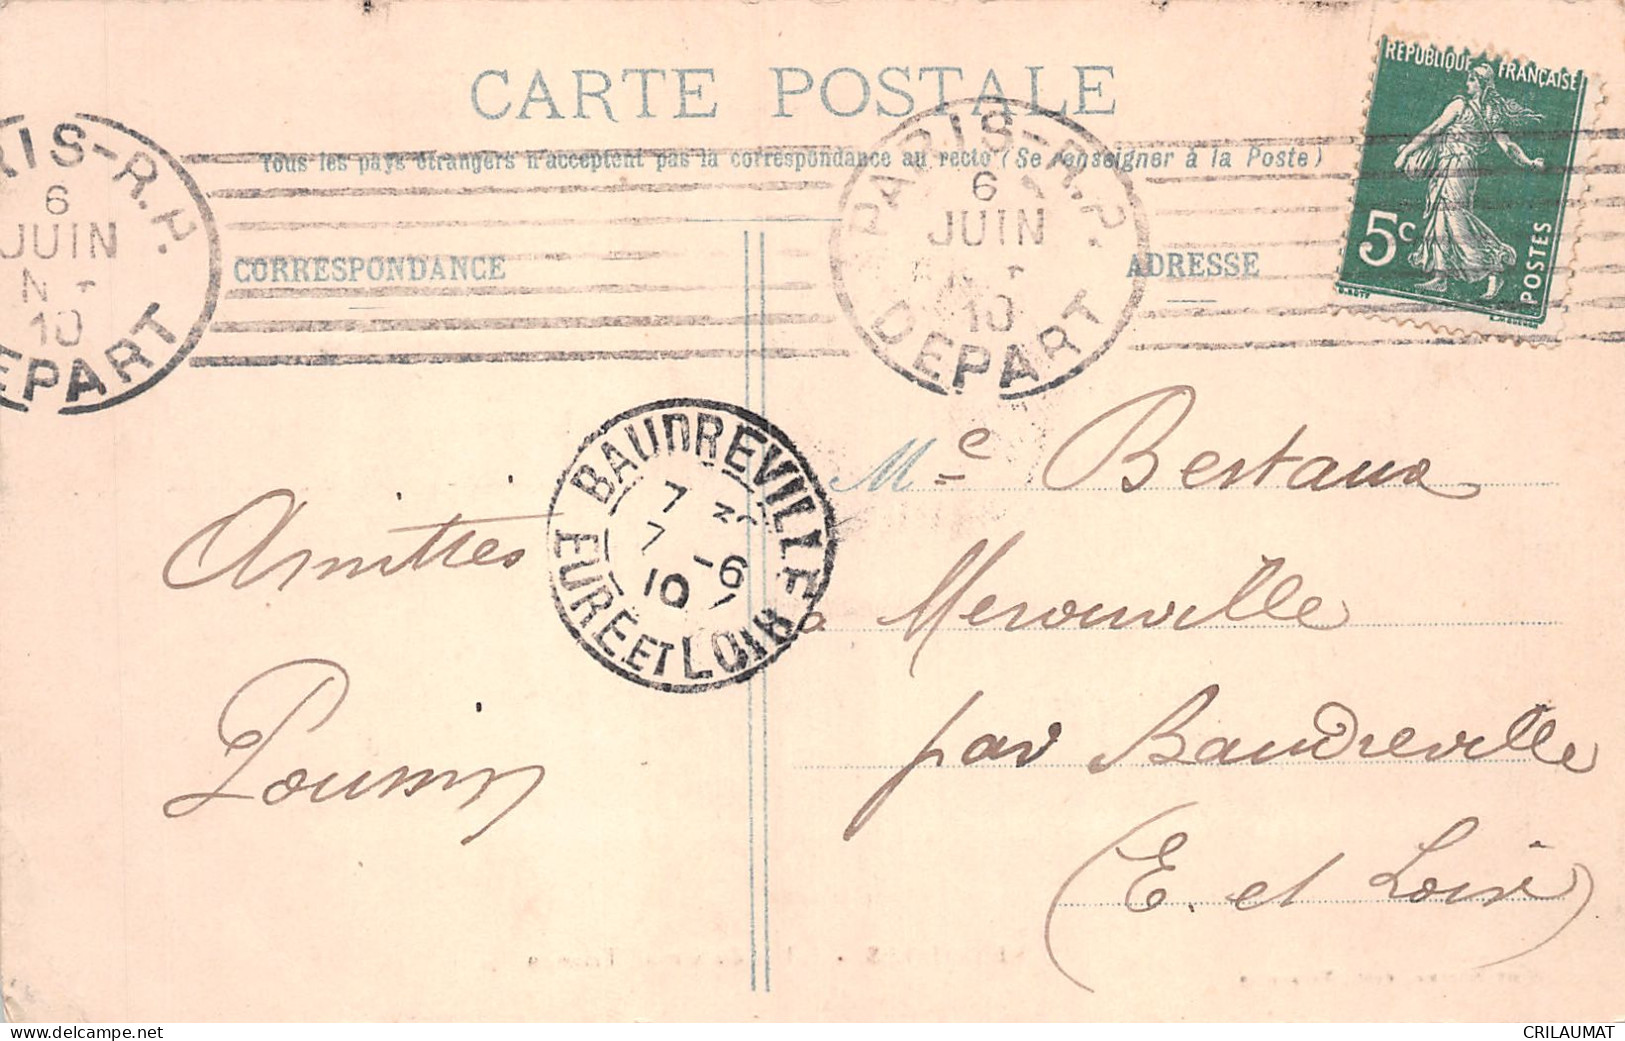 CARTE POSTALE
Tous les pays étrangers n'acceptent pas la correspondance au recto (Se renseigner à la Poste)
CORRESPONDANCE
ADRESSE
RÉPUBLIQUE FRANÇAISE
5c
POSTES
RIS-R.P.
6
JUIN
10
DEPART
PARIS-R.P.
6
JUIN
10
DEPART
BAUDREVILLE
7
7 -6
10
EURE ET LOIR
Amitiés
Me Bertaux
à Merouville
par Baudreville
(E. et Loir)
CRILAUMAT